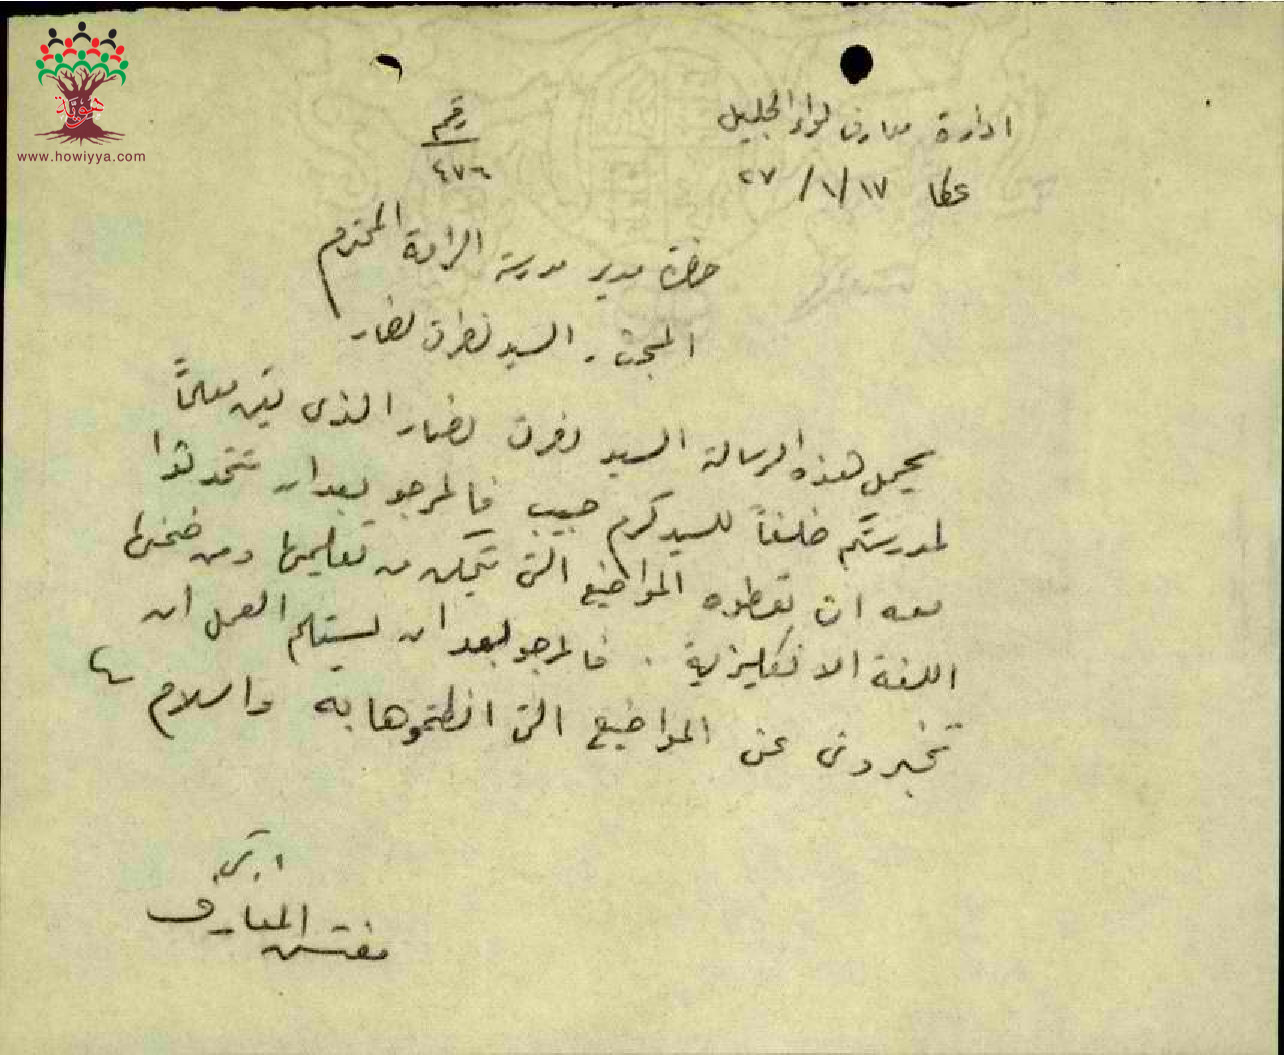 هويّة
www.howiyya.com
ادارة معارف لواء الجليل
رقم
٤٧٦
عكا ١٧/١/٢٧
حضرة مدير مدرسة الرامة المحترم
المبحث - السيد نظرت نصار
يحمل هذه الرسالة السيد نصار الذى عين معلماً
لمدرستكم خلفاً للسيد كرم حبيب فالمرجو بعد ان تتحدثوا
معه ان تعطوه المواضيع التى يتمكن من تعليمها ومن ضمنها
اللغة الانكليزية . فالمرجو بعد ان يستلم العمل ان
تخبرونى عن المواضيع التى انطتموها به والسلام
مفتش المعارف